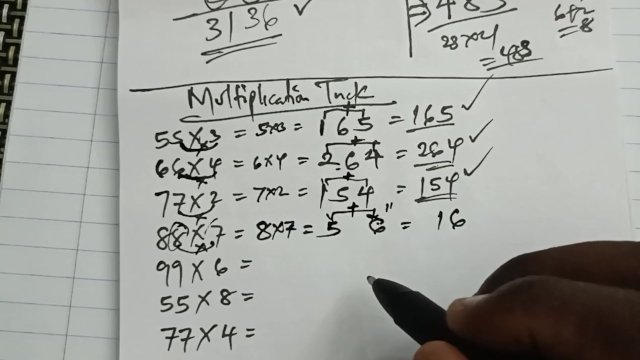 3136 ✓
483
28x21
= 488
Multiplication Trick
55x3 = 5x3 = 165 = 165 ✓
66x4 = 6x4 = 264 = 264 ✓
77x2 = 7x2 = 154 = 154 ✓
88x7 = 8x7 = 5 6 = 16
99x6 =
55x8 =
77x4 =